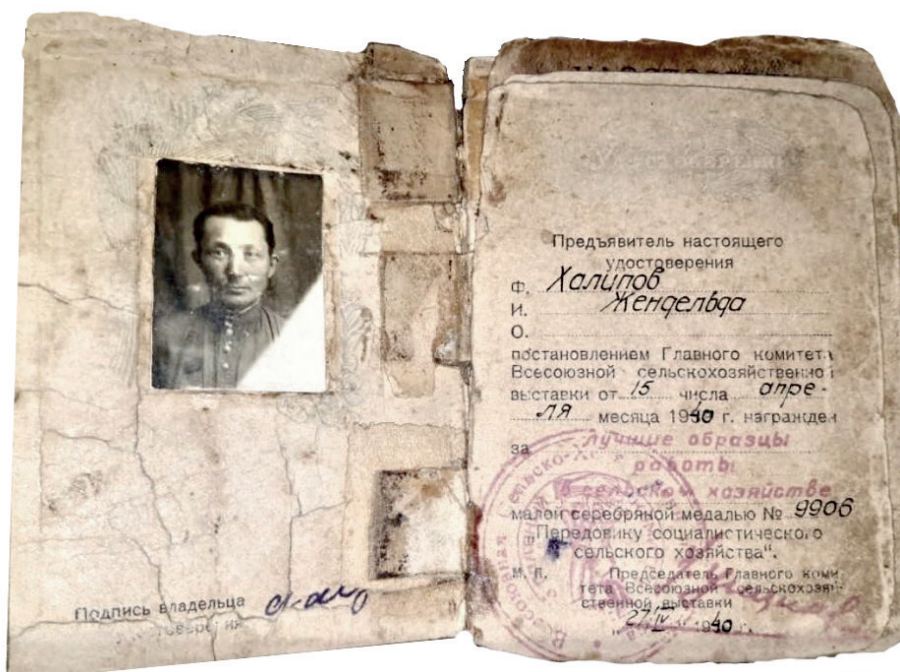 Подпись владельца
Предъявитель настоящего
удостоверения
Ф. Халипов
И. Жендельда
О.
постановлением Главного комитета
Всесоюзной сельскохозяйственной
выставки от 15 числа апре-
ля месяца 1940 г. награжден
за лучшие образцы
работы
в сельском хозяйстве
малой серебряной медалью № 9906
„Передовику социалистического
сельского хозяйства".
М. П. Председатель Главного коми-
тета Всесоюзной сельскохозяй-
ственной выставки
„27/IV 1940 г.